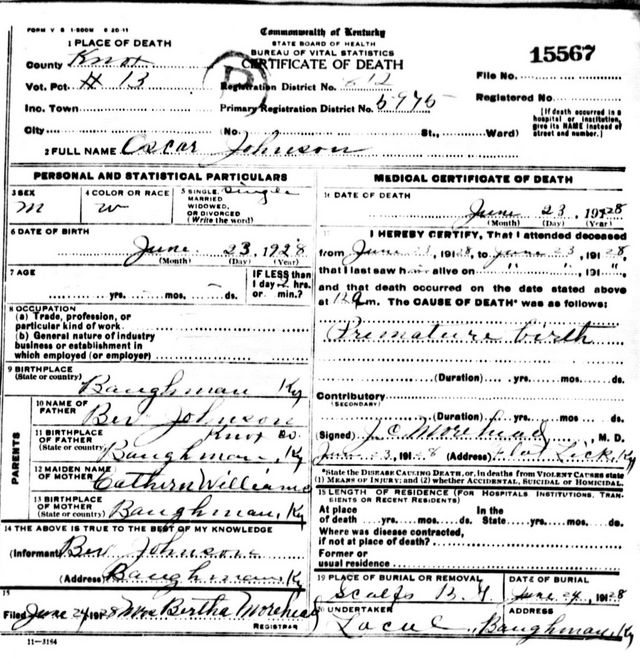 FORM V S 1-500M 6-20-11
Commonwealth of Kentucky
STATE BOARD OF HEALTH
BUREAU OF VITAL STATISTICS
CERTIFICATE OF DEATH
15567
1 PLACE OF DEATH
County Knox
Vot. Pct. # 13
Inc. Town
City
Registration District No. 612
Primary Registration District No. 5975
(No. St., Ward)
File No.
Registered No.
[If death occurred in a hospital or institution, give its NAME instead of street and number.]
2 FULL NAME Oscar Johnson
PERSONAL AND STATISTICAL PARTICULARS
3 SEX M
4 COLOR OR RACE W
5 SINGLE, MARRIED WIDOWED, OR DIVORCED (Write the word) Single
6 DATE OF BIRTH
June 23, 1928
(Month) (Day) (Year)
7 AGE
yrs. mos. ds.
IF LESS than 1 day 2 hrs. or min.?
8 OCCUPATION
(a) Trade, profession, or particular kind of work
(b) General nature of industry business or establishment in which employed (or employer)
9 BIRTHPLACE (State or country) Baughman Ky
PARENTS
10 NAME OF FATHER Bev Johnson
11 BIRTHPLACE OF FATHER (State or country) Knox Co. Baughman, Ky
12 MAIDEN NAME OF MOTHER Cathern Williams
13 BIRTHPLACE OF MOTHER (State or country) Baughman, Ky
14 THE ABOVE IS TRUE TO THE BEST OF MY KNOWLEDGE
(Informant) Bev Johnson
(Address) Baughman, Ky
15
Filed June 24 1928 Mrs Bertha Morehead
REGISTRAR
11-3184
MEDICAL CERTIFICATE OF DEATH
16 DATE OF DEATH
June 23, 1928
(Month) (Day) (Year)
17 I HEREBY CERTIFY, That I attended deceased
from June 23, 1928, to June 23, 1928,
that I last saw h alive on " " , 191 " ,
and that death occurred on the date stated above
at m. The CAUSE OF DEATH* was as follows:
Premature birth
(Duration) yrs. mos. ds.
Contributory
(SECONDARY)
(Duration) yrs. mos. ds.
(Signed) J C Morehead, M. D.
June 23, 1928 (Address) Flat Lick, Ky
*State the DISEASE CAUSING DEATH, or, in deaths from VIOLENT CAUSES state (1) MEANS OF INJURY; and (2) whether ACCIDENTAL, SUICIDAL or HOMICIDAL.
18 LENGTH OF RESIDENCE (FOR HOSPITALS INSTITUTIONS, TRANSIENTS OR RECENT RESIDENTS)
At place of death yrs. mos. ds. In the State yrs. mos. ds.
Where was disease contracted, if not at place of death?
Former or usual residence
19 PLACE OF BURIAL OR REMOVAL
DATE OF BURIAL
Scalfs B. G June 24, 1928
20 UNDERTAKER
ADDRESS
Local Baughman, Ky